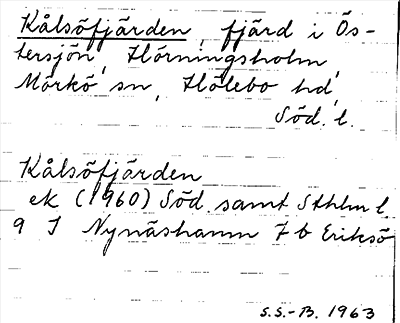 Kålsöfjärden, fjärd i Ös-
tersjön, Hörningsholm,
Mörkö sn, Hölebo hd,
Söd. l.
Kålsöfjärden
ek (1960) Söd. samt Sthlm l.
9 I Nynäshamn 7 b Eriksö
S.S.-B. 1963